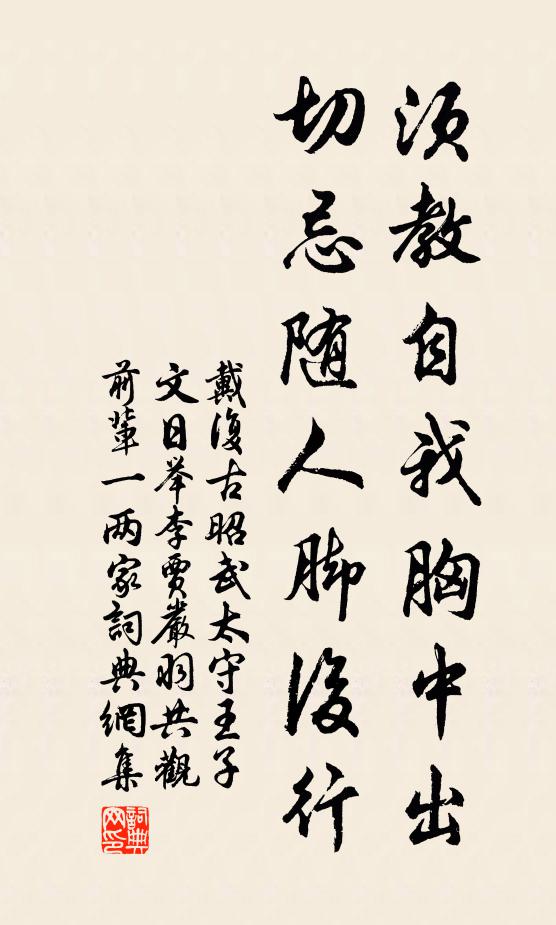 须教自我胸中出
切忌随人脚後行
戴復古昭武太守王子
文日举李賈嚴羽共觀
前輩一两家詞典網集
詞典
网印